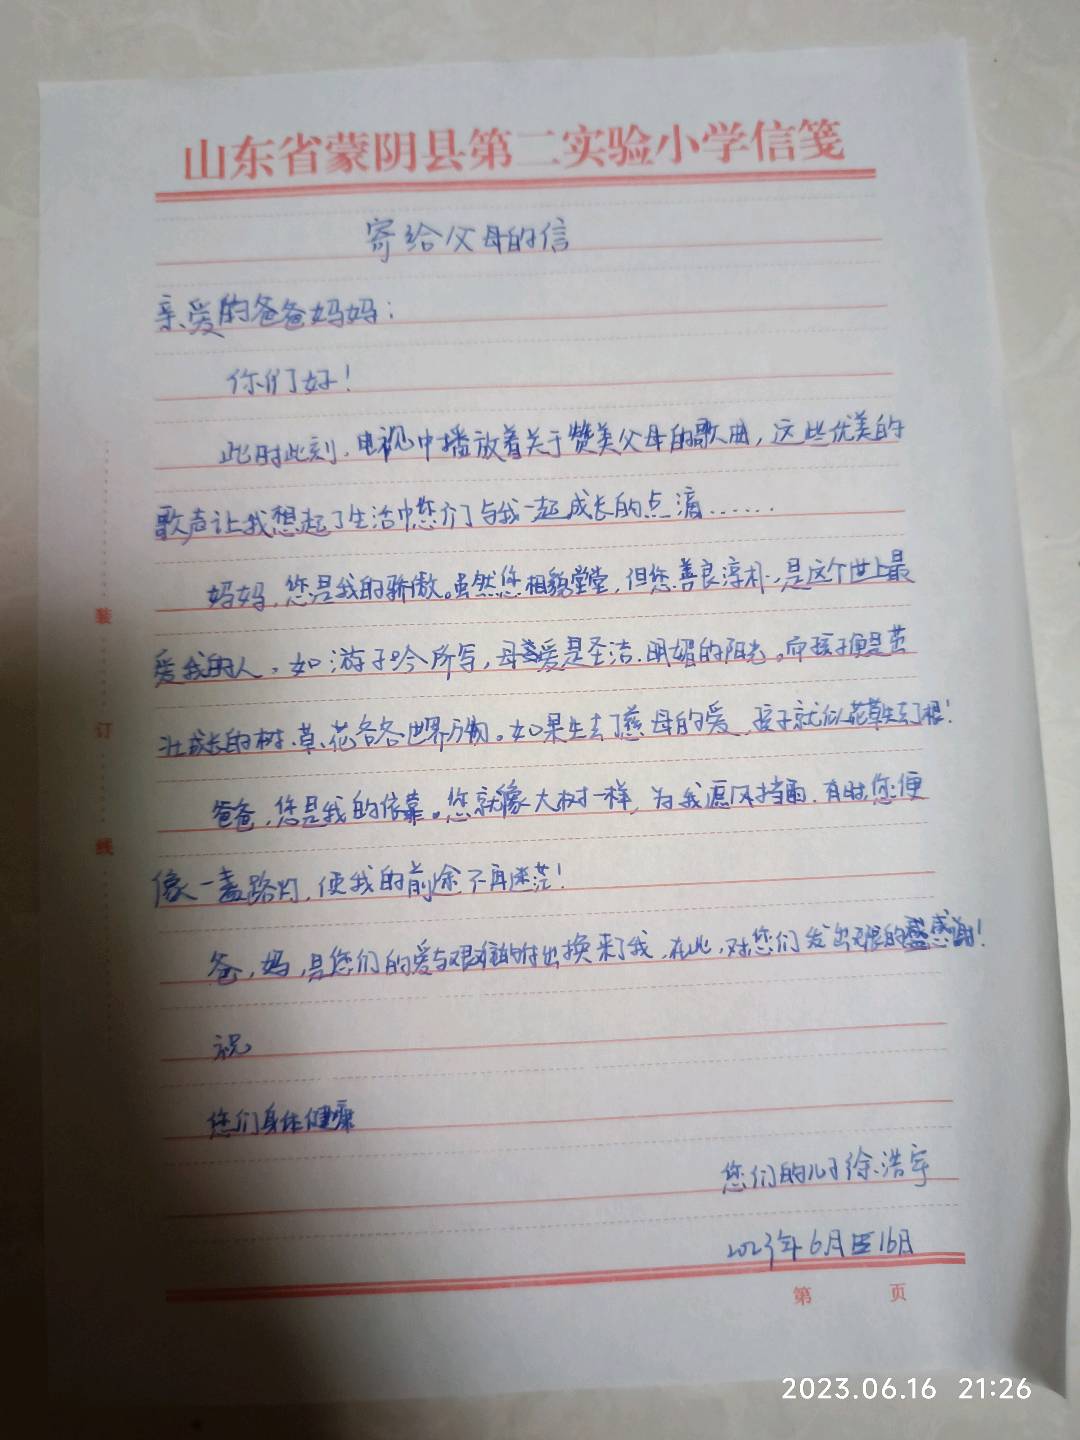 山东省蒙阴县第二实验小学信笺
寄给父母的信
亲爱的爸爸妈妈：
你们好！
此时此刻，电视中播放着关于赞美父母的歌曲，这些优美的
歌声让我想起了生活中您们与我一起成长的点滴……
妈妈，您是我的骄傲。虽然您相貌堂堂，但您善良淳朴，是这个世上最
爱我的人。如游子吟所写，母爱是圣洁、明媚的阳光。而孩子便是茁
壮成长的树、草、花各各世界万物。如果失去了慈母的爱，孩子就似花草失去了根！
爸爸，您是我的依靠。您就像大树一样，为我遮风挡雨，有时您便
像一盏路灯，使我的前途不再迷茫！
爸，妈，是您们的爱与艰难的付出换来了我，在此，对您们发出无限的感谢！
祝
您们身体健康
您们的儿子徐浩宇
2023年6月16日
装
订
线
第 页
2023.06.16 21:26